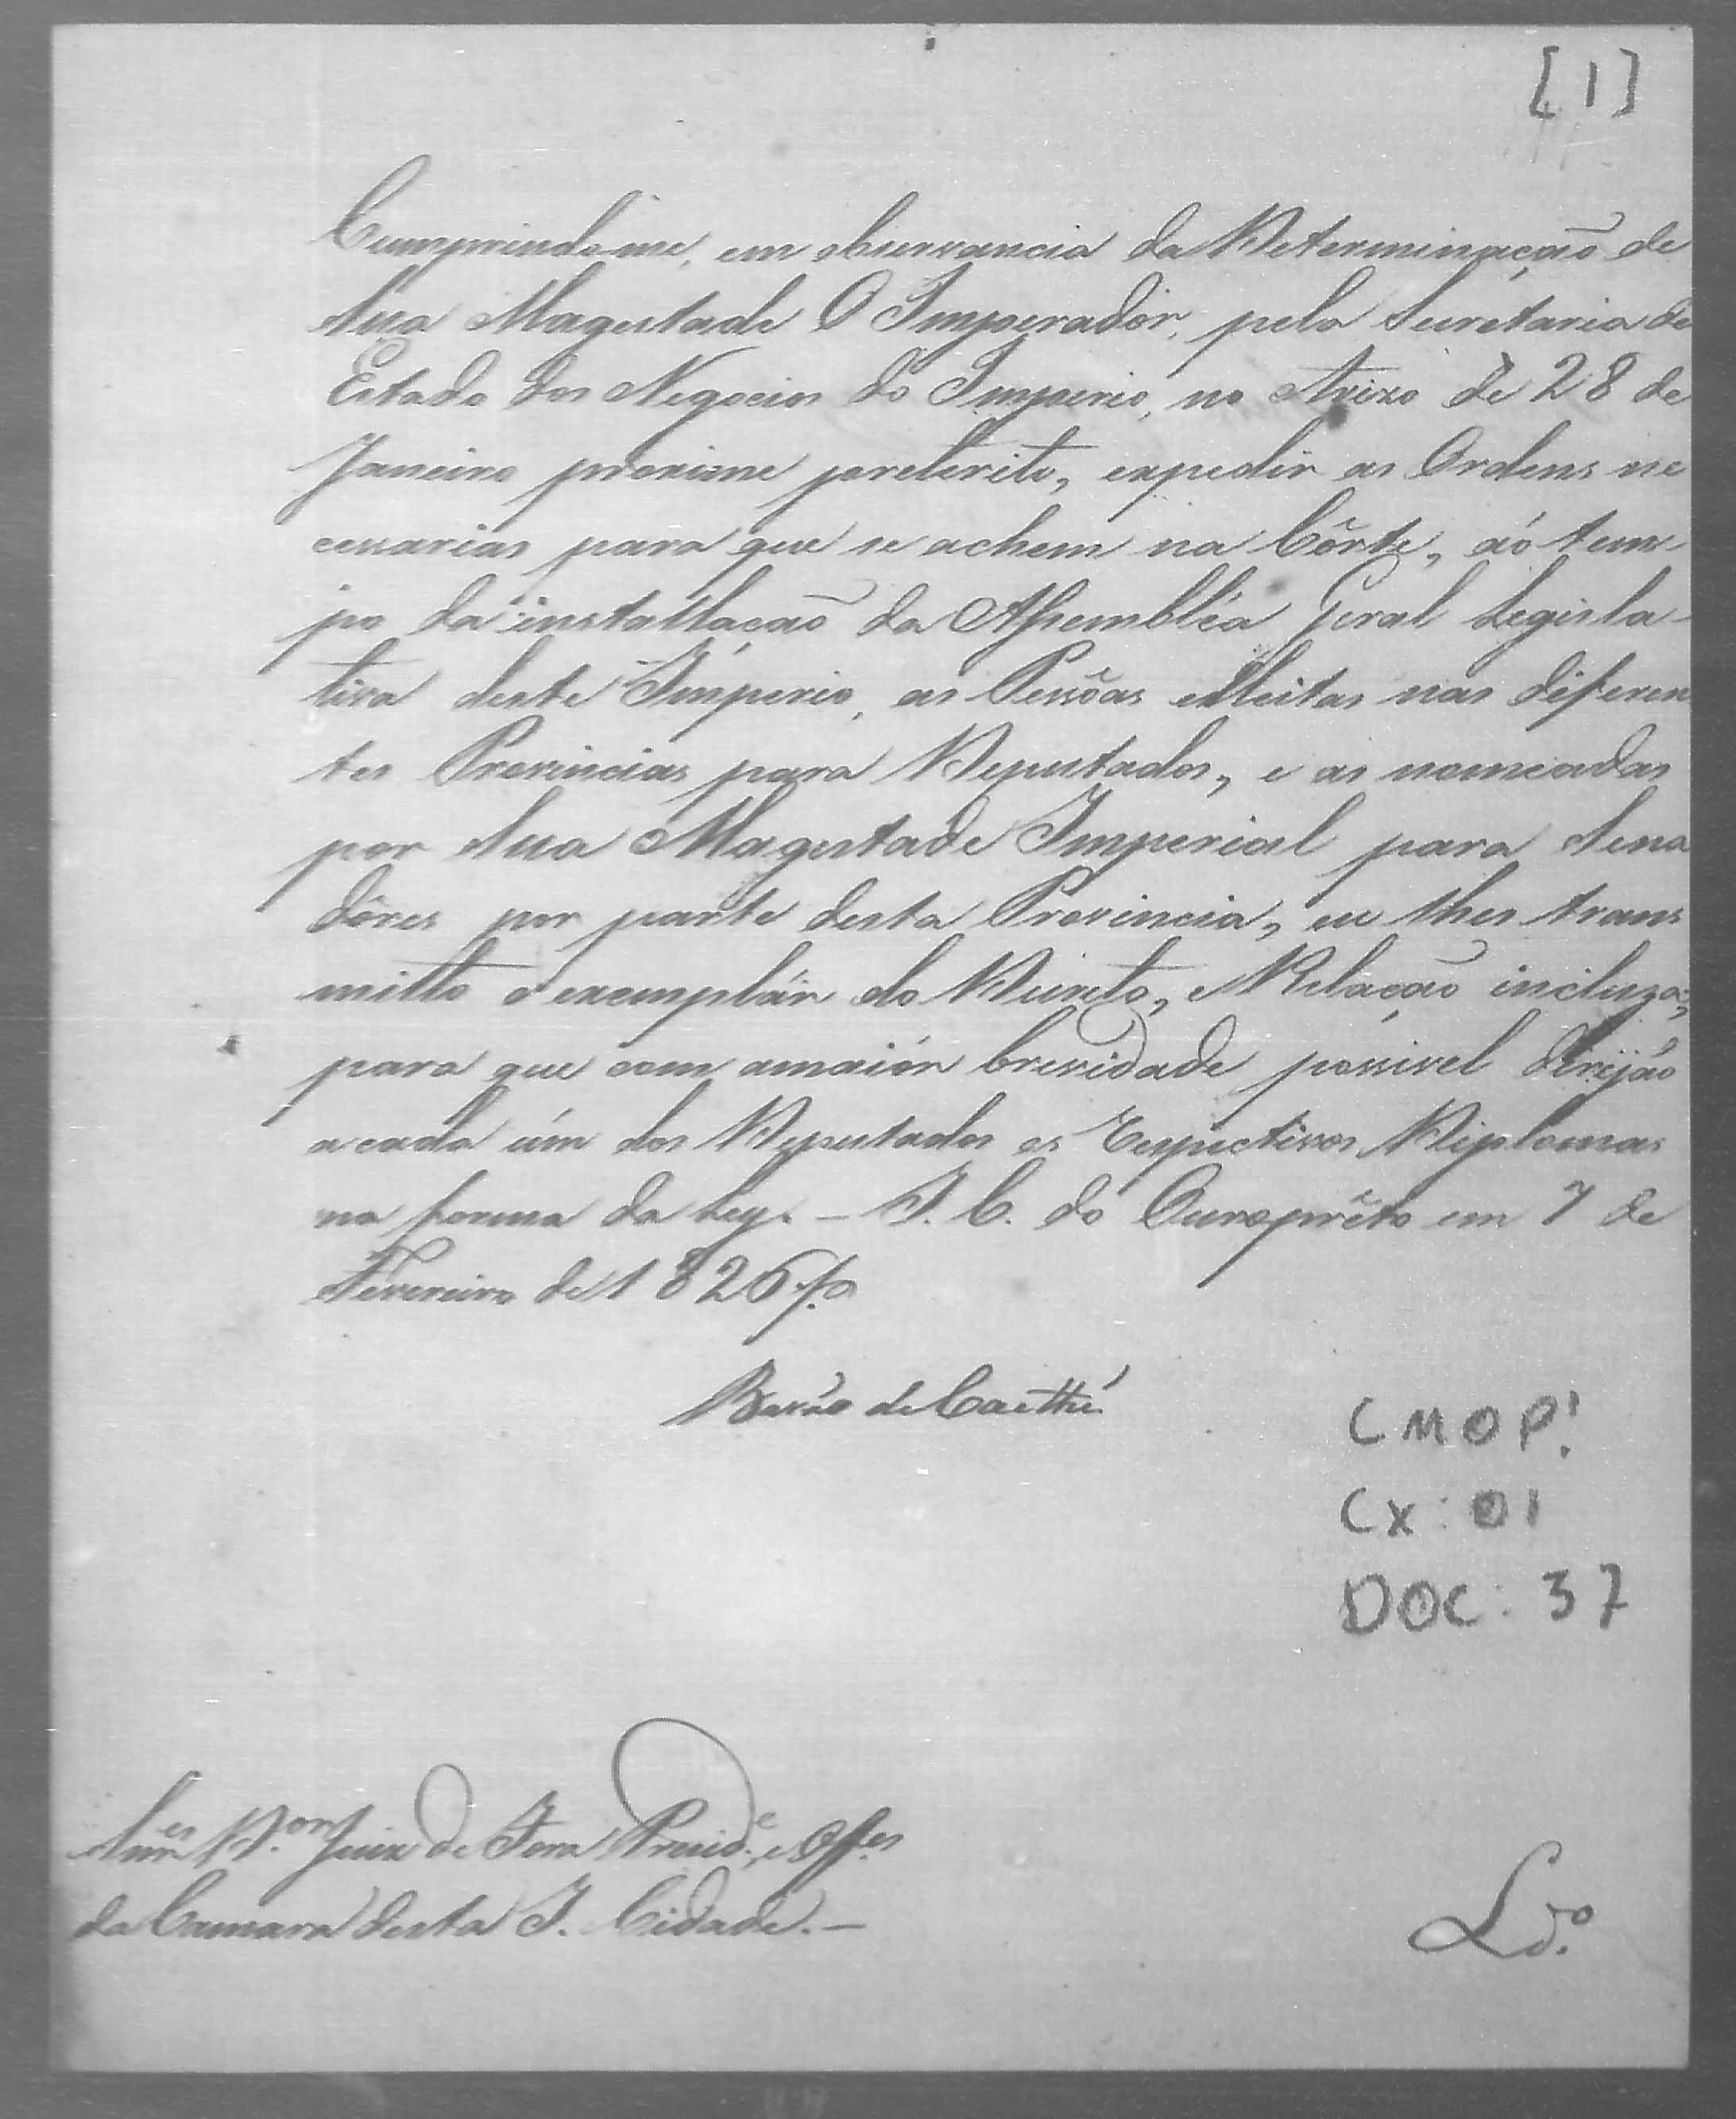 [1]
Cumprindo-me, em observancia da Determinação de
Sua Magestade O Imperador, pela Secretaria de
Estado dos Negocios do Imperio, no Avizo de 28 de
Janeiro proxime preterito, expedir as Ordens ne
cessarias para que se achem na Côrte, áo tem-
po da installação da Assembléa Geral Legisla-
tiva deste Imperio, as Pessôas elleitas nas diferen
tes Provincias para Deputados, e as nomeadas
por Sua Magestade Imperial para Sena
dôres por parte desta Provincia, eu lhes trans
mitto o exemplár do Decreto, e Relação incluza,
para que com amaiór brevidade possivel dirijáo
a cada úm dos Deputados os respectivos Diplomas
na forma da Ley. — I. C. do Ouroprêto em 7 de
Fevereiro de 1826.
Barão de Caethé
CMOP!
Cx: 01
DOC: 37
Snr.es D.or Juiz de Fora Presid.e, e Off.es
da Camara desta I. Cidade. —
L.do